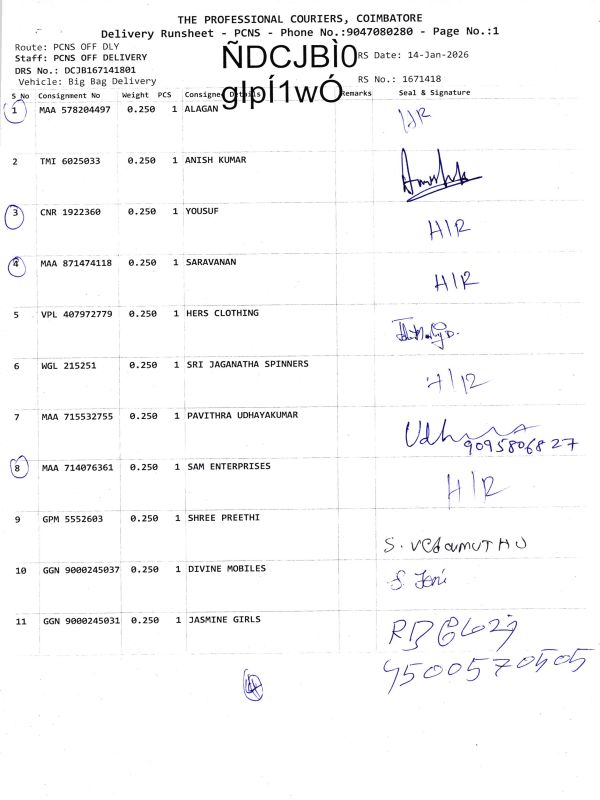 THE PROFESSIONAL COURIERS, COIMBATORE
Delivery Runsheet - PCNS - Phone No.:9047080280 - Page No.:1
Route: PCNS OFF DLY
Staff: PCNS OFF DELIVERY
ÑDCJBÌ0
RS Date: 14-Jan-2026
DRS No.: DCJB167141801
Vehicle: Big Bag Delivery
glpÍ1wÓ
RS No.: 1671418
S No Consignment No Weight PCS Consignee Details Remarks Seal & Signature
1 MAA 578204497 0.250 1 ALAGAN H/R
2 TMI 6025033 0.250 1 ANISH KUMAR
3 CNR 1922360 0.250 1 YOUSUF H/R
4 MAA 871474118 0.250 1 SARAVANAN H/R
5 VPL 407972779 0.250 1 HERS CLOTHING
6 WGL 215251 0.250 1 SRI JAGANATHA SPINNERS H/R
7 MAA 715532755 0.250 1 PAVITHRA UDHAYAKUMAR
9095806827
8 MAA 714076361 0.250 1 SAM ENTERPRISES H/R
9 GPM 5552603 0.250 1 SHREE PREETHI
10 GGN 9000245037 0.250 1 DIVINE MOBILES
11 GGN 9000245031 0.250 1 JASMINE GIRLS
9500570505